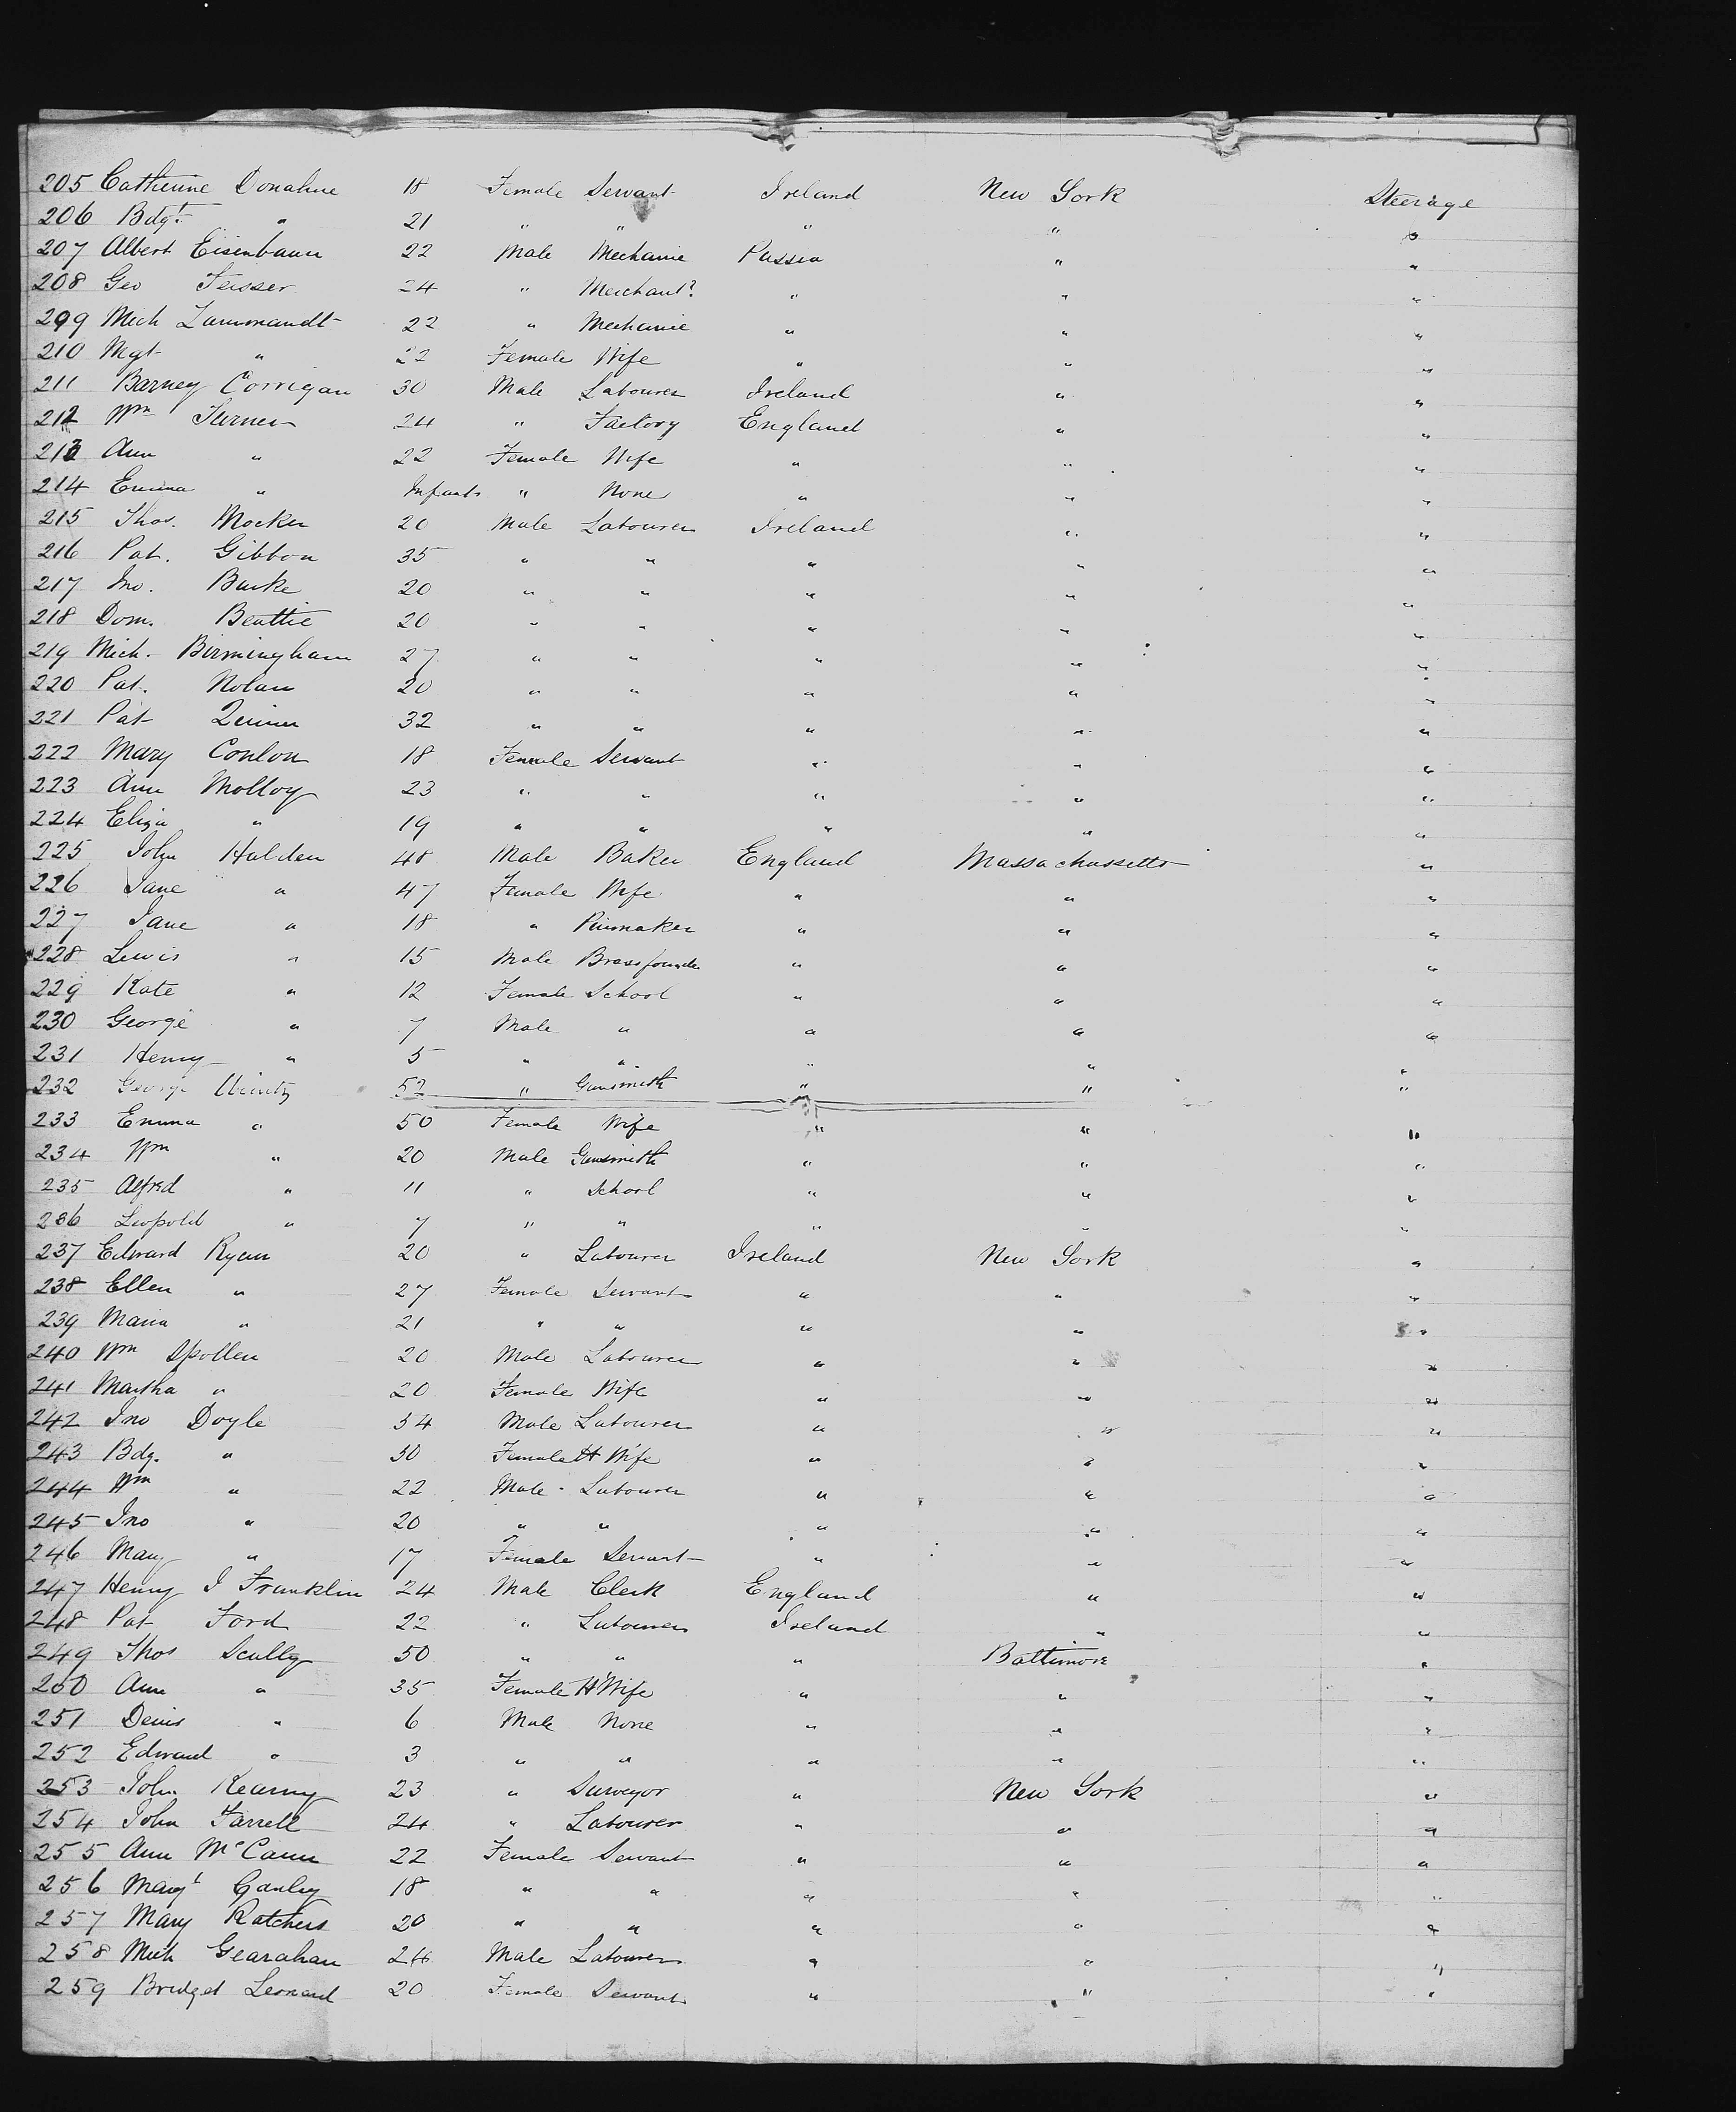 205 Catherine Donahue 18 Female Servant Ireland New York Steerage
206 Bdgt. " 21 " " " " "
207 Albert Eisenbaun 22 Male Mechanic Pussia " "
208 Geo 24 " Merchant? " " "
209 Mich 22 " Mechanic " " "
210 Mgt " 22 Female Wife " " "
211 Barney Corrigan 30 Male Labourer Ireland " "
212 Wm Turner 24 " Factory England " "
213 Ann " 22 Female Wife " " "
214 Emma " Infant " None " " "
215 Thos. Mocker 20 Male Labourer Ireland " "
216 Pat. Gibbon 35 " " " " "
217 Jno. Burke 20 " " " " "
218 Dom. Beattie 20 " " " " "
219 Mich. Birmingham 27 " " " " "
220 Pat. Nolan 20 " " " " "
221 Pat Quinn 32 " " " " "
222 Mary Conlon 18 Female Servant " " "
223 Ann Molloy 23 " " " " "
224 Eliza " 19 " " " " "
225 John Halden 48 Male Baker England Massachussetts "
226 Jane " 47 Female Wife " " "
227 Jane " 18 " Pinmaker " " "
228 Lewis " 15 Male Brassfounder " " "
229 Kate " 12 Female School " " "
230 George " 7 Male " " " "
231 Henry " 5 " " " " "
232 George 52 " Gunsmith " " "
233 Emma " 50 Female Wife " " "
234 Wm " 20 Male Gunsmith " " "
235 Alfred " 11 " School " " "
236 Leopold " 7 " " " " "
237 Edward Ryan 20 " Labourer Ireland New York "
238 Ellen " 27 Female Servant " " "
239 Maria " 21 " " " " "
240 Wm Spollen 20 Male Labourer " " "
241 Martha " 20 Female Wife " " "
242 Jno Doyle 54 Male Labourer " " "
243 Bdg. " 50 Female H Wife " " "
244 Wm " 22 Male Labourer " " "
245 Jno " 20 " " " " "
246 Mary " 17 Female Servant " " "
247 Henry J Franklin 24 Male Clerk England " "
248 Pat Ford 22 " Labourer Ireland " "
249 Thos Scully 50 " " " Baltimore "
250 Ann " 35 Female H Wife " " "
251 Denis " 6 Male None " " "
252 Edward " 3 " " " " "
253 John Kearny 23 " Surveyor " New York "
254 John Farrell 24 " Labourer " " "
255 Ann McCann 22 Female Servant " " "
256 Margt Ganley 18 " " " " "
257 Mary Katchers 20 " " " " "
258 Mich Gearahan 24 Male Labourer " " "
259 Bridget Leonard 20 Female Servant " " "